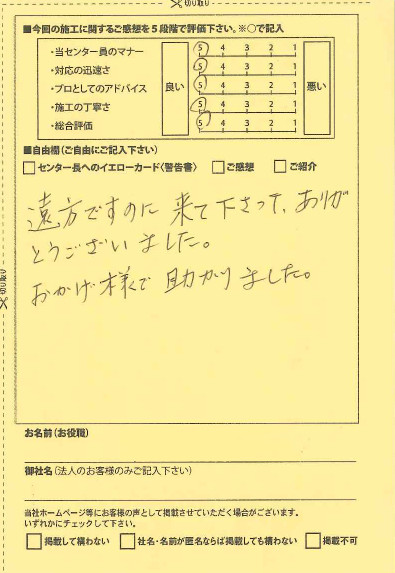 切り取り
■今回の施工に関するご感想を5段階で評価下さい。※○で記入
・当センター員のマナー 5 4 3 2 1
・対応の迅速さ 5 4 3 2 1
・プロとしてのアドバイス 良い 5 4 3 2 1 悪い
・施工の丁寧さ 5 4 3 2 1
・総合評価 5 4 3 2 1
■自由欄(ご自由にご記入下さい)
□センター長へのイエローカード〈警告書〉 □ご感想 □ご紹介
遠方ですのに 来て下さって、ありが
とうございました。
おかげ様で 助かりました。
切り取り
お名前(お役職)
御社名(法人のお客様のみご記入下さい)
当社ホームページ等にお客様の声として掲載させていただく場合がございます。
いずれかにチェックして下さい。
□掲載して構わない □社名・名前が匿名ならば掲載しても構わない □掲載不可